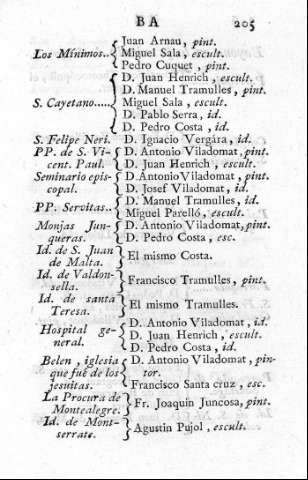 BA 205
Los Mínimos.. Juan Arnau, pint.
Miguel Sala, escult.
Pedro Cuquet, pint.
S. Cayetano..... D. Juan Henrich, escult.
D. Manuel Tramulles, pint.
Miguel Sala, escult.
D. Pablo Serra, id.
D. Pedro Costa, id.
S. Felipe Neri. D. Ignacio Vergára, id.
PP. de S. Vi- D. Antonio Viladomat, pint.
cent. Paul. D. Juan Henrich, escult.
Seminario epis- D. Antonio Viladomat, pint.
copal. D. Josef Viladomat, id.
PP. Servitas.. D. Manuel Tramulles, id.
Miguel Parelló, escult.
Monjas Jun- D. Antonio Viladomat, pint.
queras. D. Pedro Costa, esc.
Id. de S. Juan
de Malta. El mismo Costa.
Id. de Valdon-
sella. Francisco Tramulles, pint.
Id. de santa
Teresa. El mismo Tramulles.
Hospital ge- D. Antonio Viladomat, id.
neral. D. Juan Henrich, escult.
D. Pedro Costa, id.
Belen, iglesia D. Antonio Viladomat, pin-
que fué de los tor.
jesuitas. Francisco Santa cruz, esc.
La Procura de
Montealegre. Fr. Joaquin Juncosa, pint.
Id. de Mont-
serrate. Agustin Pujol, escult.